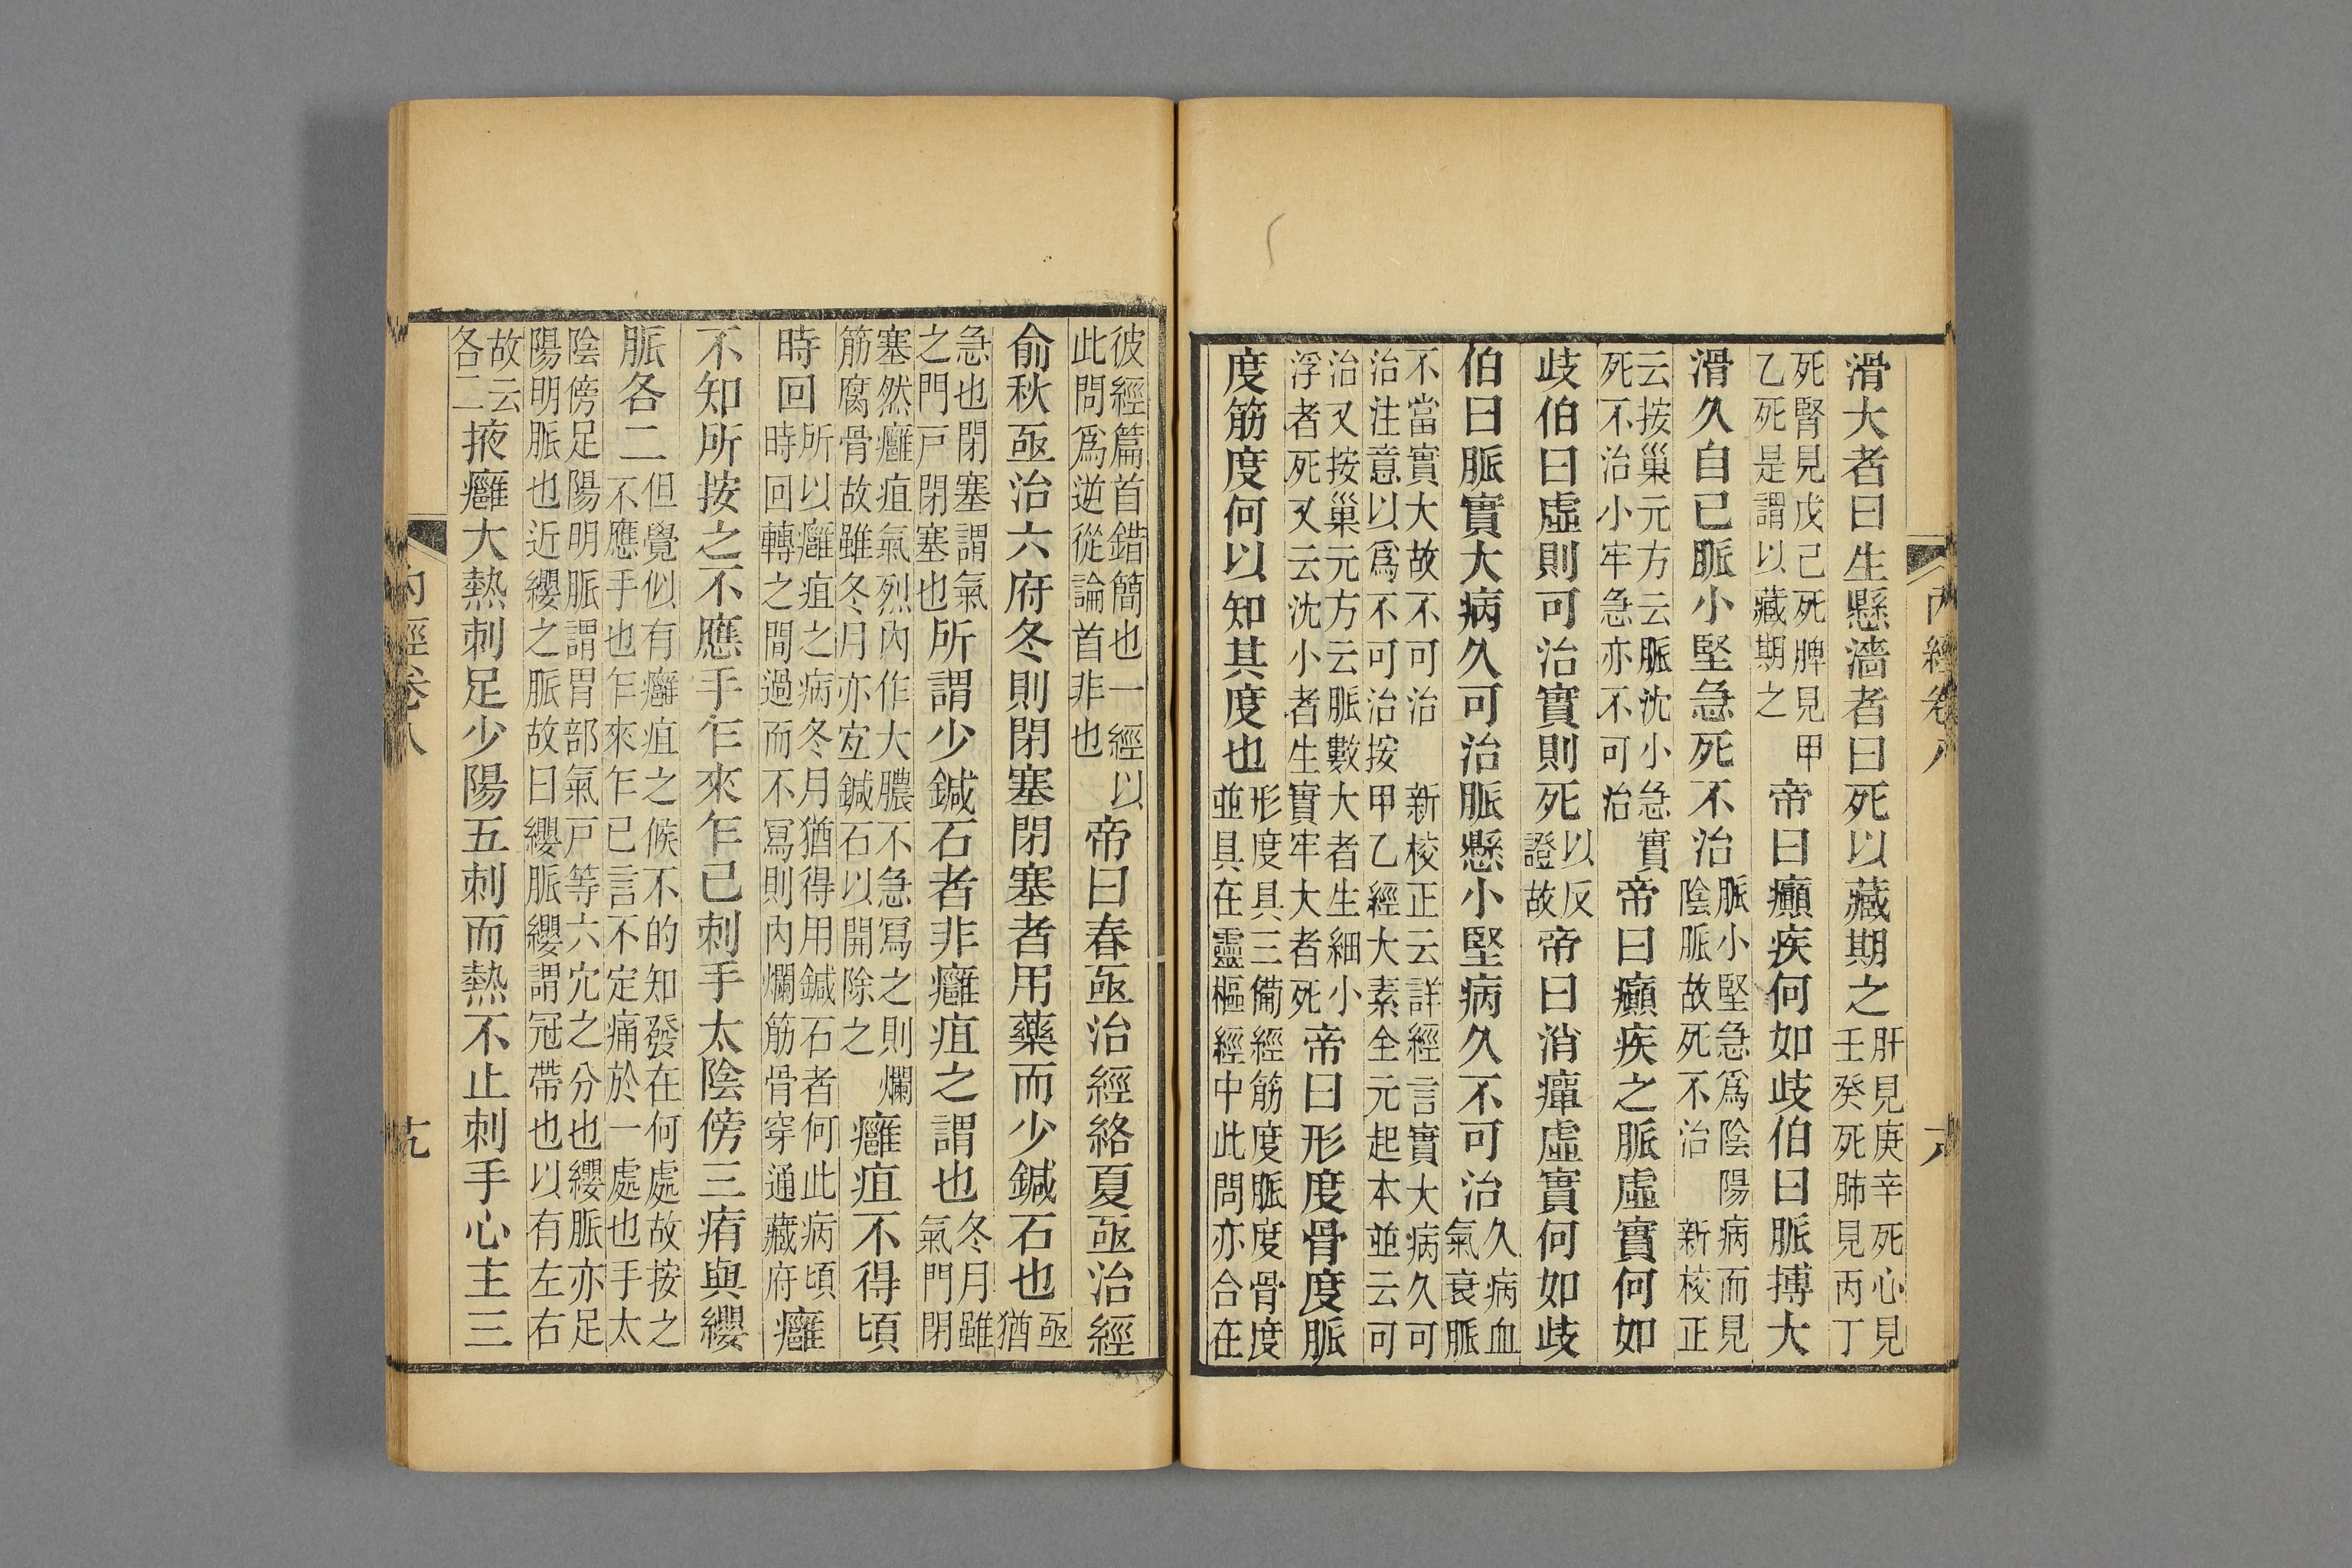 滑大者曰生懸濇者曰死以藏期之肝見庚辛死心見
壬癸死肺見丙丁
死腎見戊己死脾見甲
乙死是謂以藏期之帝曰癲疾何如歧伯曰脈搏大
滑久自已脈小堅急死不治脈小堅急爲陰陽病而見
陰脈故死不治　新校正
云按巢元方云脈沈小急實
死不治小牢急亦不可治帝曰癲疾之脈虛實何如
歧伯曰虛則可治實則死以反
證故帝曰消癉虛實何如歧
伯曰脈實大病久可治脈懸小堅病久不可治久病血
氣衰脈
不當實大故不可治　新校正云詳經言實大病久可
治注意以爲不可治按甲乙經大素全元起本並云可
治又按巢元方云脈數大者生細小
浮者死又云沈小者生實牢大者死帝曰形度骨度脈
度筋度何以知其度也形度具三備經筋度脈度骨度
並具在靈樞經中此問亦合在
彼經篇首錯簡也一經以
此問爲逆從論首非也帝曰春亟治經絡夏亟治經
俞秋亟治六府冬則閉塞閉塞者用藥而少鍼石也亟
猶
急也閉塞謂氣
之門戸閉塞也所謂少鍼石者非癰疽之謂也冬月雖
氣門閉
塞然癰疽氣烈內作大膿不急寫之則爛
筋腐骨故雖冬月亦宐鍼石以開除之癰疽不得頃
時回所以癰疽之病冬月猶得用鍼石者何此病頃
時回轉之間過而不寫則內爛筋骨穿通藏府癰
不知所按之不應手乍來乍已刺手太陰傍三痏與纓
脈各二但覺似有癰疽之候不的知發在何處故按之
不應手也乍來乍已言不定痛於一處也手太
陰傍足陽明脈謂胃部氣戸等六穴之分也纓脈亦足
陽明脈也近纓之脈故曰纓脈纓謂冠帶也以有左右
故云
各二掖癰大熱刺足少陽五刺而熱不止刺手心主三